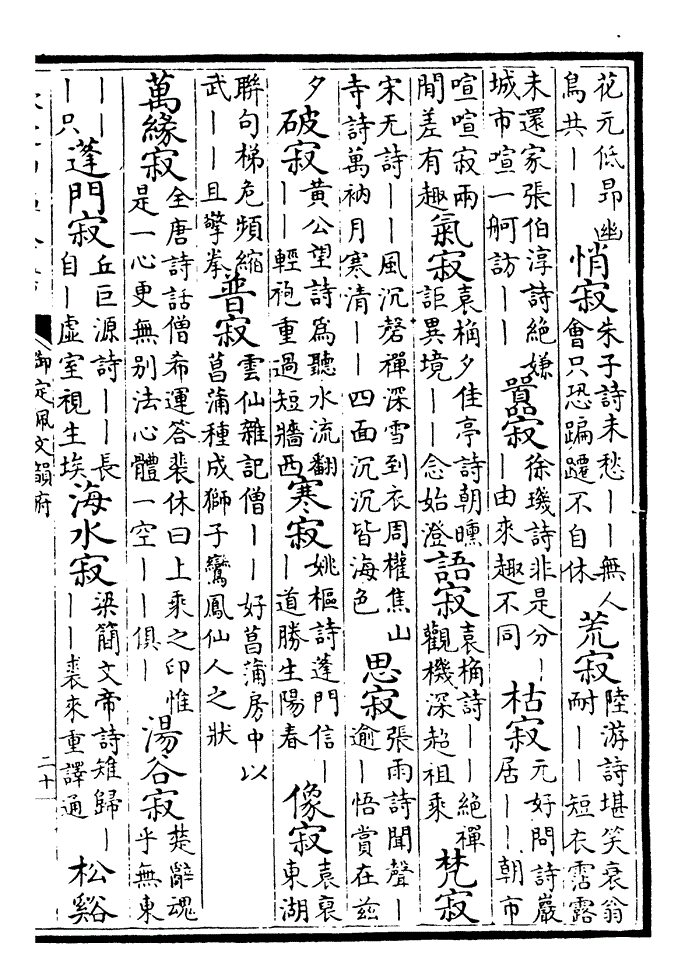 花元低昂幽
鳥共——
悄寂
朱子詩未愁——無人
會只恐蹁躚不自休
荒寂
陸游詩堪笑衰翁
耐——短衣霑露
未還家張伯淳詩絕嫌
城市喧一舸訪——
囂寂
徐璣詩非是分—
—由來趣不同
枯寂
元好問詩巖
居——朝市
喧喧寂兩
閒差有趣
氣寂
袁桷夕佳亭詩朝曛
詎異境——念始澄
語寂
袁桷詩——絕禪
觀機深超祖乘
梵寂
宋无詩——風沉磬禪深雪到衣周權焦山
寺詩萬衲月寒清——四面沉沉皆海色
思寂
張雨詩聞聲—
逾—悟賞在兹
夕
破寂
黃公望詩爲聽水流翻
——輕袍重過短牆西
寒寂
姚樞詩蓬門信—
—道勝生陽春
像寂
袁裒
東湖
聯句梯危頻縮
武——且擎拳
普寂
雲仙雜記僧——好菖蒲房中以
菖蒲種成獅子鸞鳳仙人之狀
萬緣寂
全唐詩話僧希運答裴休曰上乘之印惟
是一心更無别法心體一空——俱—
湯谷寂
楚辭魂
乎無東
——
—只
蓬門寂
丘巨源詩——長
自—虛室視生埃
海水寂
梁簡文帝詩雉歸—
——裘來重譯通
松谿
御定佩文韻府
二十